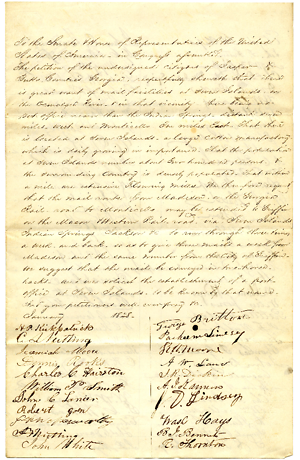 To the Senate & House of Representatives of the United
States of America - in Congress assembled.
The petition of the undersigned citizens of Jasper &
Butts Counties Georgia, respectfully sheweth that there
is great want of mail facilities at Seven Islands on
the Ocmulgee River & in that vicinity. There being no
post office nearer than the Indian Springs, distant
miles West, and Monticello miles East. That there
is located at Seven Islands, a large Cotton manufactory
which is daily growing in importance. That the population
at Seven Islands number about hundred persons, &
the surrounding Country is densely populated. That within
a mile are extensive Flouring Mills. We therefore request
that the mail route from Madison on the Georgia
Rail road to Monticello may be extended to Griffin
on the Macon & Western Rail road via Seven Islands
Indian Springs Jackson & to run through three times
a week and back, so as to give three mails a week from
Madison and the same number from the City of Griffin.
We suggest that the mails be conveyed in two horse
hacks. And we solicit the establishment of a post
office at Seven Islands to be known by that name.
And your petitioners will ever pray &c
January 1848.
Kirkpatrick
Jeremiah Moore
Charles C Hairston
William P. Smith
John C Linier
Robert
John White
George Britton
Parham Lindsey
A W Lane
D. Lindsey
Wash Hays
B. F. Bennett
Thornton